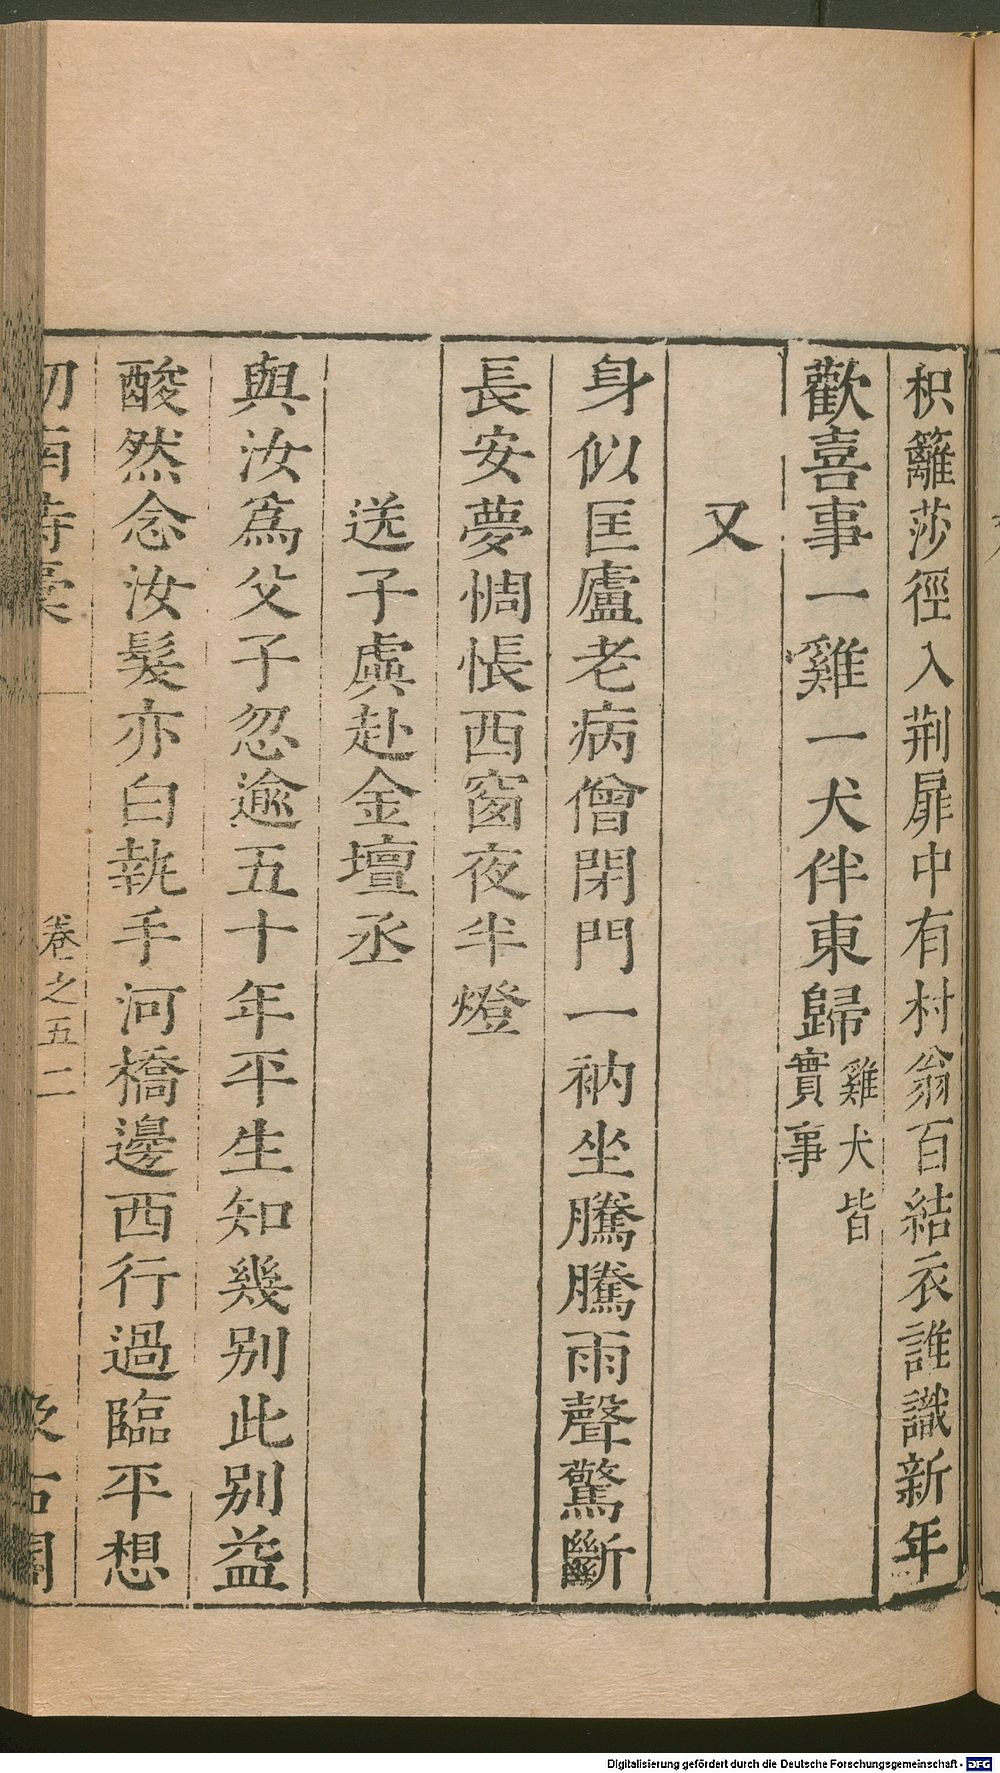 枳籬莎徑入荆扉中有村翁百結衣誰識新年
歡喜事一雞一犬伴東歸雞犬皆實事
又
身似匡廬老病僧閉門一衲坐騰騰雨聲驚斷
長安夢惆悵西窗夜半燈
送子虡赴金壇丞
與汝爲父子忽逾五十年平生知幾别此别益
酸然念汝髮亦白執手河橋邊西行過臨平想
卷之五二
Digitalisierung gefördert durch die Deutsche Forschungsgemeinschaft - DFG